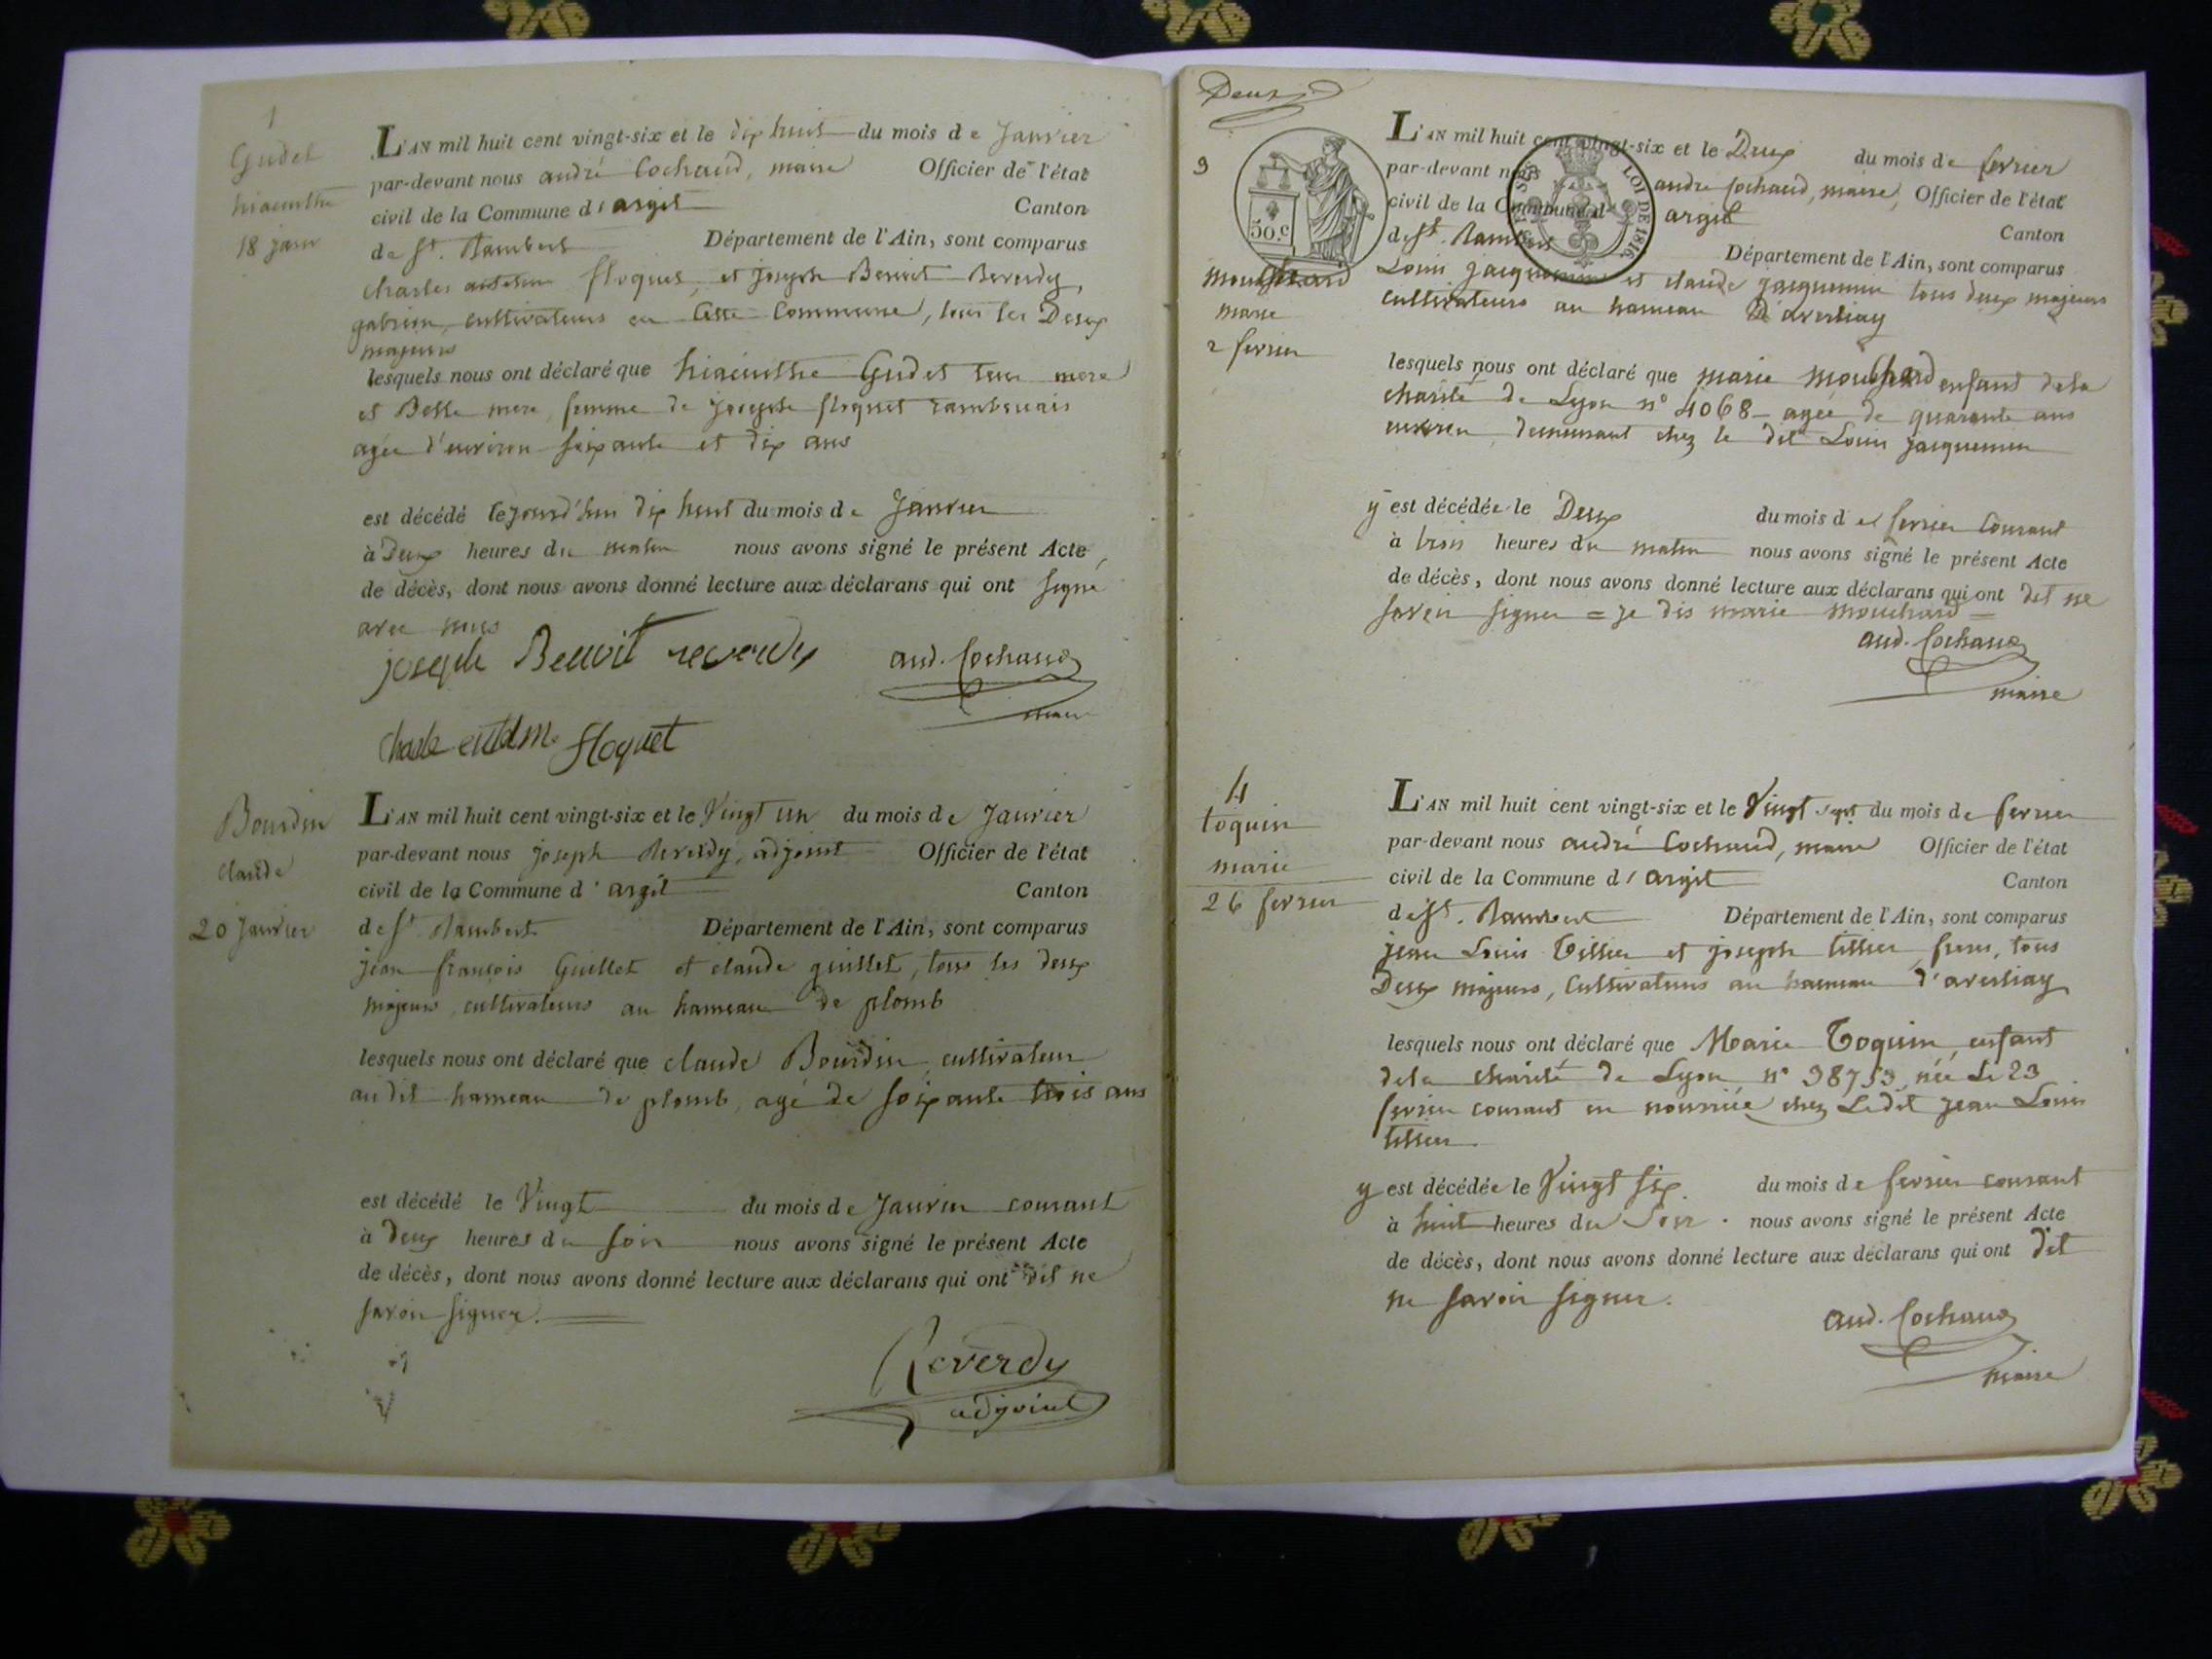 1
Gudet
hiacinthe
18 janv
L'AN mil huit cent vingt-six et le dix huit du mois de Janvier
par-devant nous andré Cochaud, maire Officier de l'état
civil de la Commune d'argit Canton
de St. Rambert Département de l'Ain, sont comparus
charles antelme floques, et joseph Benoit Reverdy,
cultivateurs en Cette Commune, tous les Deux
majeurs
lesquels nous ont déclaré que hiacinthe Gudet leur mere
et Belle mere, femme de joseph floquet
agée d'environ soixante et dix ans
est décédé cejourd'hui dix huit du mois de Janvier
à Deux heures du matin nous avons signé le présent Acte,
de décès, dont nous avons donné lecture aux déclarans qui ont signé
avec nous
joseph Benoit reverdy and. Cochaud
maire
Charle floquet
Bourdin
claude
20 Janvier
L'AN mil huit cent vingt-six et le Vingt un du mois de Janvier
par-devant nous joseph Reverdy, adjoint Officier de l'état
civil de la Commune d'argit Canton
de St. Rambert Département de l'Ain, sont comparus
jean françois Guillot et claude guillet, tous les deux
majeurs cultivateurs au hameau de plomb
lesquels nous ont déclaré que claude Bourdin, cultivateur
au dit hameau de plomb, agé de soixante trois ans
est décédé le Vingt du mois de Janvier courant
à deux heures du soir nous avons signé le présent Acte
de décès, dont nous avons donné lecture aux déclarans qui ont dit ne
savoir signer.
Reverdy
adjoint
Deux
3
50.c
LOI DE 1816
mouchard
marie
2 fevrier
L'AN mil huit cent vingt-six et le Deux du mois de fevrier
par-devant nous andre Cochaud, maire, Officier de l'état
civil de la Commune d argit Canton
de St. Rambert Département de l'Ain, sont comparus
Louis jacquemin et claude jacquemin tous deux majeurs
cultivateurs au hameau D'averliay
lesquels nous ont déclaré que marie mouchard enfant dela
charité de Lyon n° 4068 - agée de quarante ans
environ, demeurant chez le dit Louis jacquemin
y est décédée le Deux du mois de fevrier Courant
à trois heures du matin nous avons signé le présent Acte
de décès, dont nous avons donné lecture aux déclarans qui ont dit ne
savoir signer = je dis marie mouchard =
and. Cochaud
maire
4
toquin
marie
26 fevrier
L'AN mil huit cent vingt-six et le Vingt sept du mois de fevrier
par-devant nous andré Cochaud, maire Officier de l'état
civil de la Commune d'argit Canton
de St. Rambert Département de l'Ain, sont comparus
jean Louis Tissier et joseph tissier freres, tous
Deux majeurs, Cultivateurs au hameau d'averliay
lesquels nous ont déclaré que Marie Toquin, enfant
dela charité de Lyon, n° 38753, née Le 23
fevrier courant en nourrice chez Ledit jean Louis
tissier
y est décédée le Vingt six. du mois de fevrier courant
à huit heures du Soir. nous avons signé le présent Acte
de décès, dont nous avons donné lecture aux déclarans qui ont dit
ne savoir signer.
and. Cochaud
maire